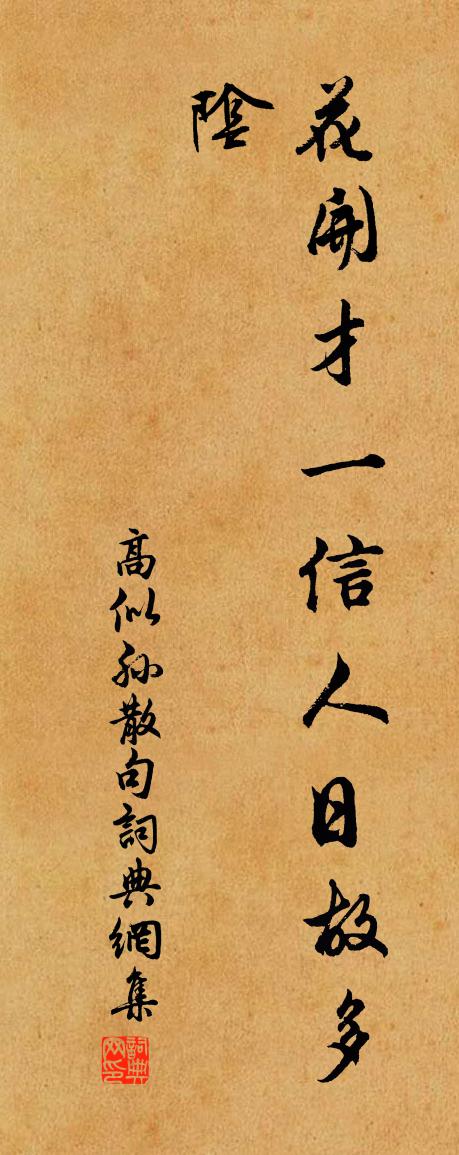 花開才一信人日故多
陰
高似孫散句詞典網集
詞典
网印